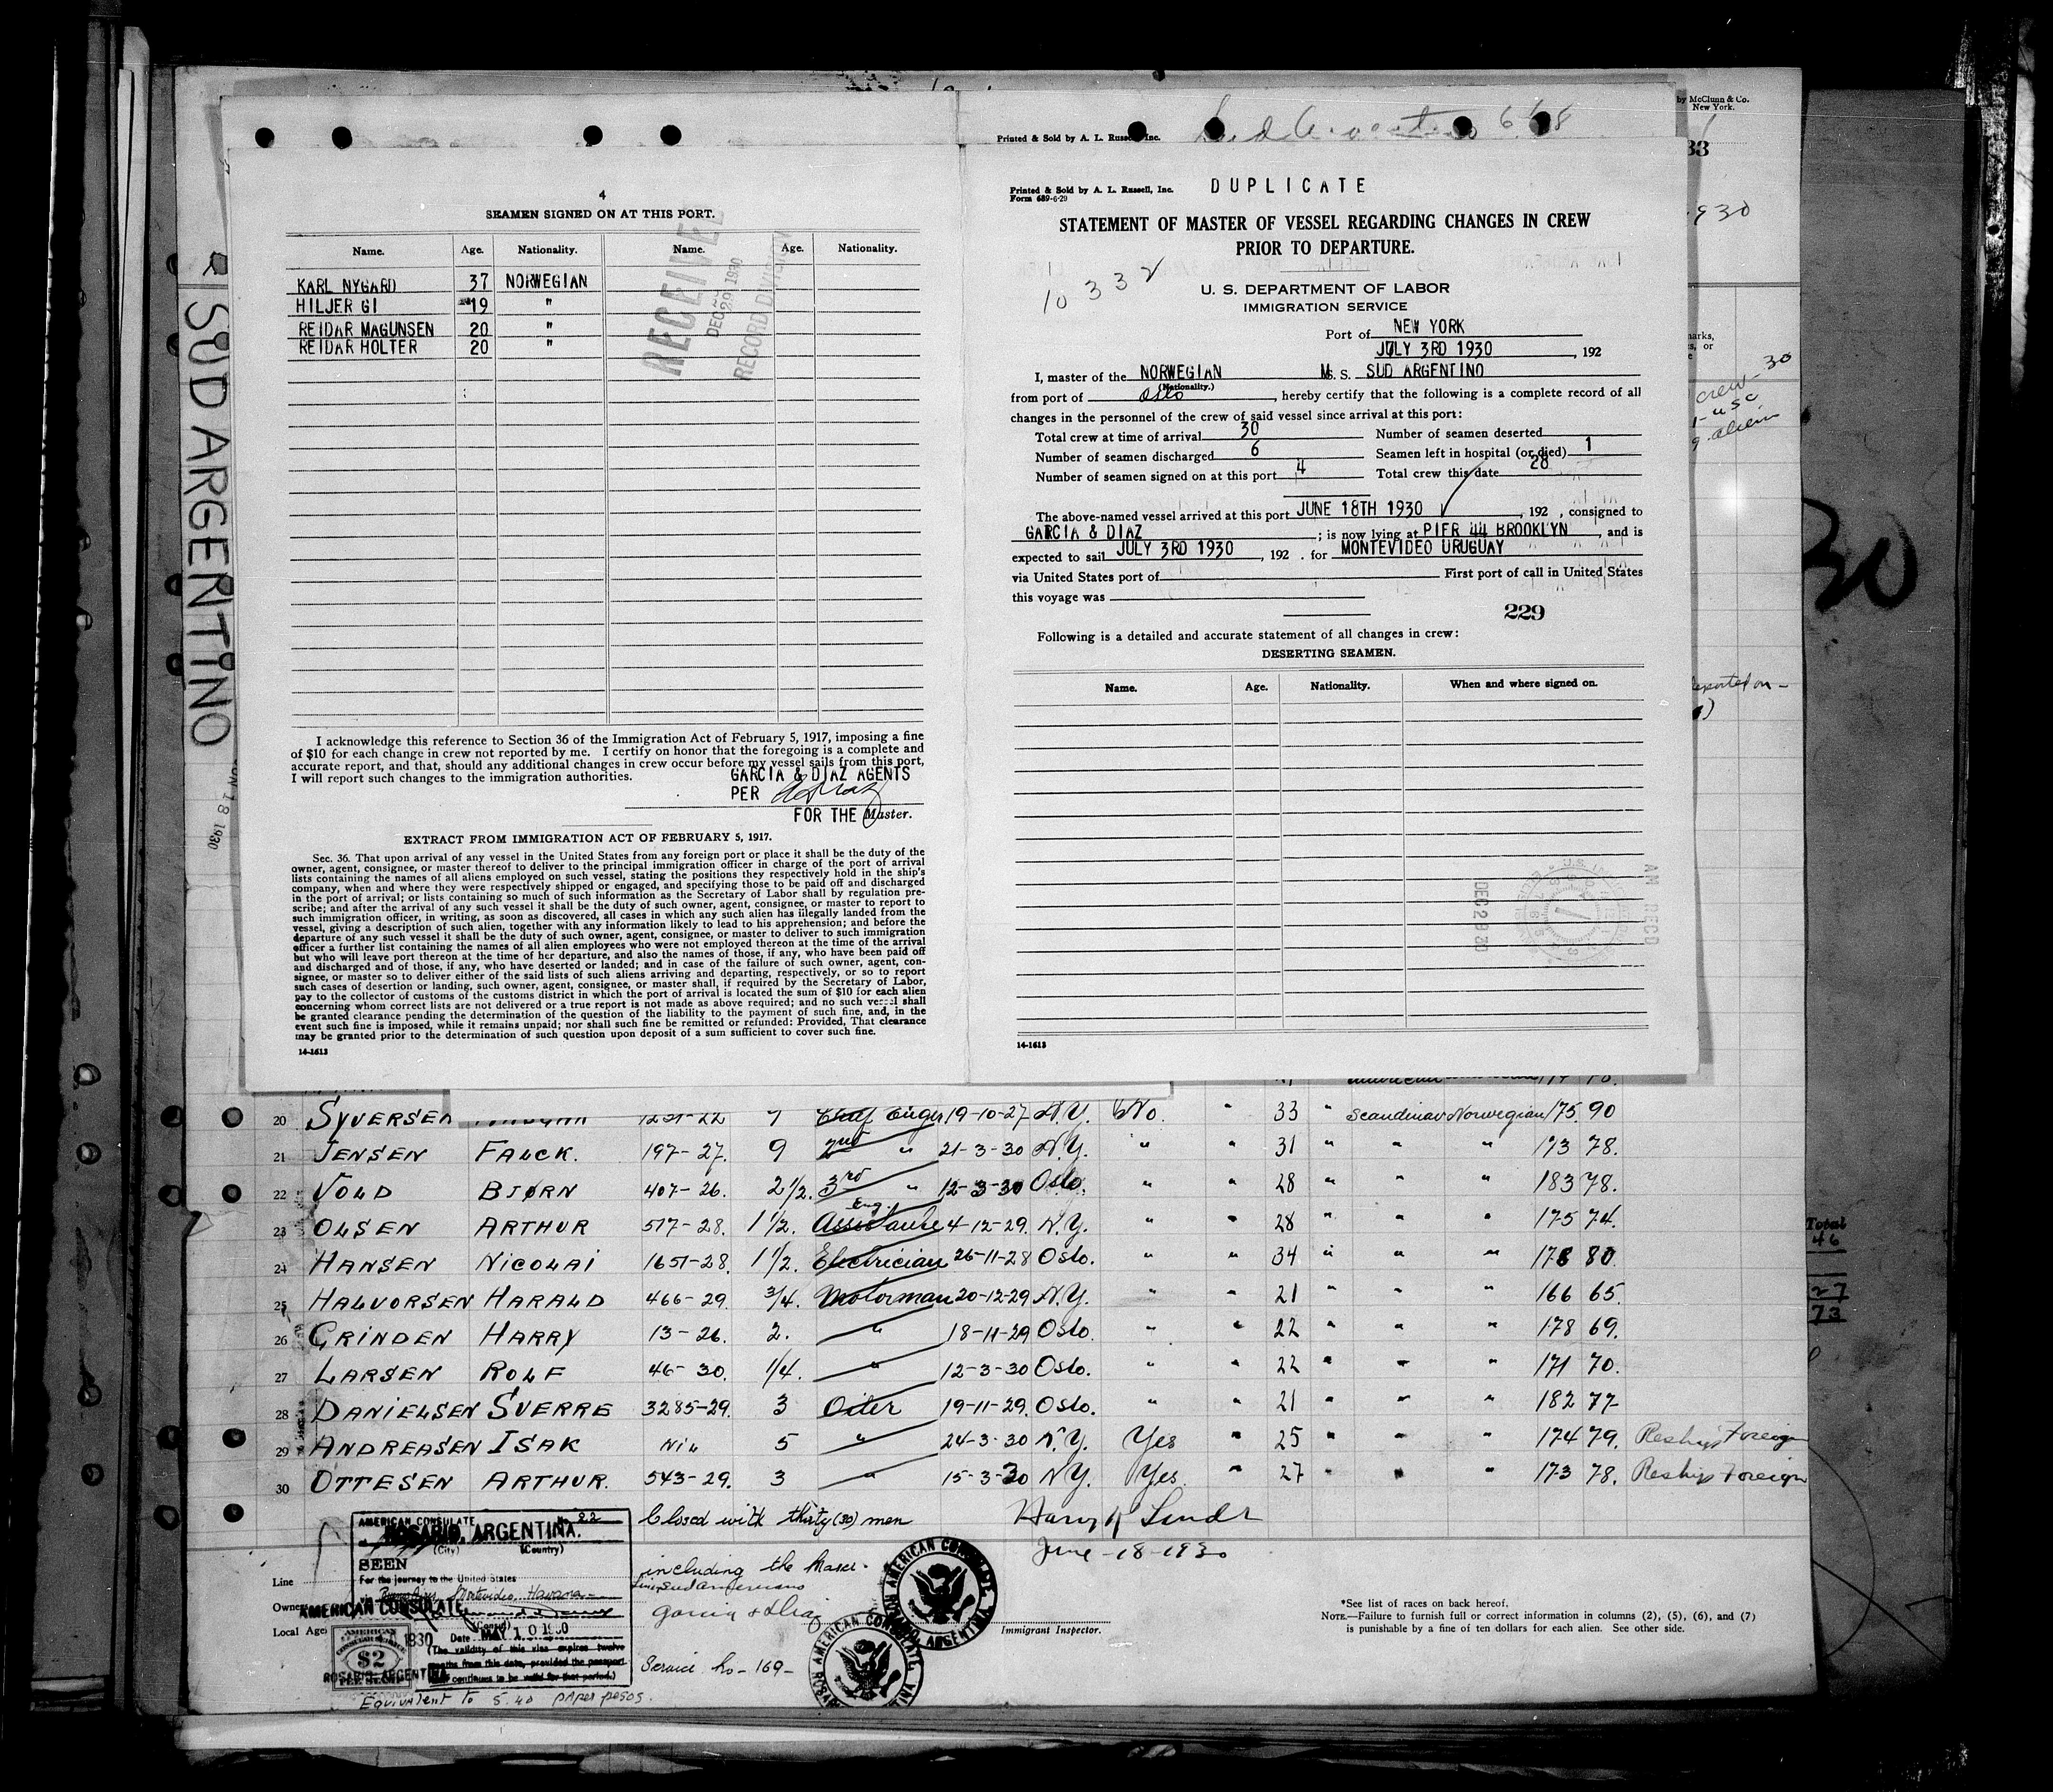 4
SEAMEN SIGNED ON AT THIS PORT.
Name. Age. Nationality. Name. Age. Nationality.
KARL NYGARD 37 NORWEGIAN
HILJER GI 19 "
REIDAR MAGUNSEN 20 "
REIDAR HOLTER 20 "
RECEIVED
DEC 29 1930
RECORD DIVISION
I acknowledge this reference to Section 36 of the Immigration Act of February 5, 1917, imposing a fine
of $10 for each change in crew not reported by me. I certify on honor that the foregoing is a complete and
accurate report, and that, should any additional changes in crew occur before my vessel sails from this port,
I will report such changes to the immigration authorities.
GARCIA & DIAZ AGENTS
PER
FOR THE Master.
EXTRACT FROM IMMIGRATION ACT OF FEBRUARY 5, 1917.
Sec. 36. That upon arrival of any vessel in the United States from any foreign port or place it shall be the duty of the
owner, agent, consignee, or master thereof to deliver to the principal immigration officer in charge of the port of arrival
lists containing the names of all aliens employed on such vessel, stating the positions they respectively hold in the ship's
company, when and where they were respectively shipped or engaged, and specifying those to be paid off and discharged
in the port of arrival; or lists containing so much of such information as the Secretary of Labor shall by regulation pre-
scribe; and after the arrival of any such vessel it shall be the duty of such owner, agent, consignee, or master to report to
such immigration officer, in writing, as soon as discovered, all cases in which any such alien has illegally landed from the
vessel, giving a description of such alien, together with any information likely to lead to his apprehension; and before the
departure of any such vessel it shall be the duty of such owner, agent, consignee, or master to deliver to such immigration
officer a further list containing the names of all alien employees who were not employed thereon at the time of the arrival
but who will leave port thereon at the time of her departure, and also the names of those, if any, who have been paid off
and discharged and of those, if any, who have deserted or landed; and in case of the failure of such owner, agent, con-
signee, or master so to deliver either of the said lists of such aliens arriving and departing, respectively, or so to report
such cases of desertion or landing, such owner, agent, consignee, or master shall, if required by the Secretary of Labor,
pay to the collector of customs of the customs district in which the port of arrival is located the sum of $10 for each alien
concerning whom correct lists are not delivered or a true report is not made as above required; and no such vessel shall
be granted clearance pending the determination of the question of the liability to the payment of such fine, and, in the
event such fine is imposed, while it remains unpaid; nor shall such fine be remitted or refunded: Provided, That clearance
may be granted prior to the determination of such question upon deposit of a sum sufficient to cover such fine.
14-1613
Printed & Sold by A. L. Russell, Inc.
Printed & Sold by A. L. Russell, Inc. DUPLICATE
Form 689-6-29
STATEMENT OF MASTER OF VESSEL REGARDING CHANGES IN CREW
PRIOR TO DEPARTURE.
10332
U. S. DEPARTMENT OF LABOR
IMMIGRATION SERVICE
Port of NEW YORK
JULY 3RD 1930, 192
I, master of the NORWEGIAN M. S. SUD ARGENTINO
(Nationality.)
from port of Oslo, hereby certify that the following is a complete record of all
changes in the personnel of the crew of said vessel since arrival at this port:
Total crew at time of arrival 30 Number of seamen deserted
Number of seamen discharged 6 Seamen left in hospital (or died) 1
Number of seamen signed on at this port 4 Total crew this date 28
The above-named vessel arrived at this port JUNE 18TH 1930, 192 , consigned to
GARCIA & DIAZ; is now lying at PIER 44 BROOKLYN, and is
expected to sail JULY 3RD 1930, 192 . for MONTEVIDEO URUGUAY
via United States port of First port of call in United States
this voyage was
229
Following is a detailed and accurate statement of all changes in crew:
DESERTING SEAMEN.
Name. Age. Nationality. When and where signed on.
DEC 29 30
AM RECD
14-1613
by McClunn & Co.
New York.
33
1930
crew-30
SUD ARGENTINO
JUN 18 1930
30
20 SYVERSEN 1231-22 9 Chief Enger 19-10-27 N.Y. No. " 33 " Scandinav Norwegian 175 90
21 JENSEN FALCK. 197-27. 9 2nd " 21-3-30 N.Y. " " 31 " " " 173 78.
22 VOLD BJØRN 407-26. 2 1/2. 3rd " 12-3-30 Oslo. " " 28 " " " 183 78.
23 OLSEN ARTHUR 517-28. 1 1/2. Eng. Assistant 4-12-29. N.Y. " " 28 " " " 175 74.
24 HANSEN NICOLAI 1651-28. 1 1/2. Electrician 26-11-28 Oslo. " " 34 " " " 178 80.
25 HALVORSEN HARALD 466-29. 3/4. Motorman 20-12-29 N.Y. " " 21 " " " 166 65.
26 GRINDEN HARRY 13-26. 2. " 18-11-29 Oslo. " " 22 " " " 178 69.
27 LARSEN ROLF 46-30. 1/4. " 12-3-30 Oslo. " " 22 " " " 171 70.
28 DANIELSEN SVERRE 3285-29. 3 Oiler 19-11-29. Oslo. " " 21 " " " 182 77
29 ANDREASEN ISAK Nil 5 " 24-3-30 N.Y. Yes " 25 " " " 174 79. Reship Foreign
30 OTTESEN ARTHUR. 543-29. 3 " 15-3-30 N.Y. Yes. " 27 " " " 173 78. Reship Foreign
Total
46
27
73
Closed with thirty (30) men
including the Master.
June-18-1930
AMERICAN CONSULATE No 22
ROSARIO, ARGENTINA.
(City) (Country)
SEEN
For the journey to the United States
Montevideo, Havana
AMERICAN CONSULATE
(Consul)
Date MAY 10 1930
(The validity of this visa expires twelve
months from this date, provided the passport
continues to be valid for that period.)
AMERICAN
$2
FEE STAMP
ROSARIO, ARGENTINA
Equivalent to 5.40 paper pesos.
Line
Owner
Local Agent
Sud Americano
Garcia & Diaz
Service No-169-
AMERICAN CONSULATE ROSARIO, ARGENTINA
AMERICAN CONSULATE ROSARIO, ARGENTINA
Immigrant Inspector.
*See list of races on back hereof.
NOTE.—Failure to furnish full or correct information in columns (2), (5), (6), and (7)
is punishable by a fine of ten dollars for each alien. See other side.